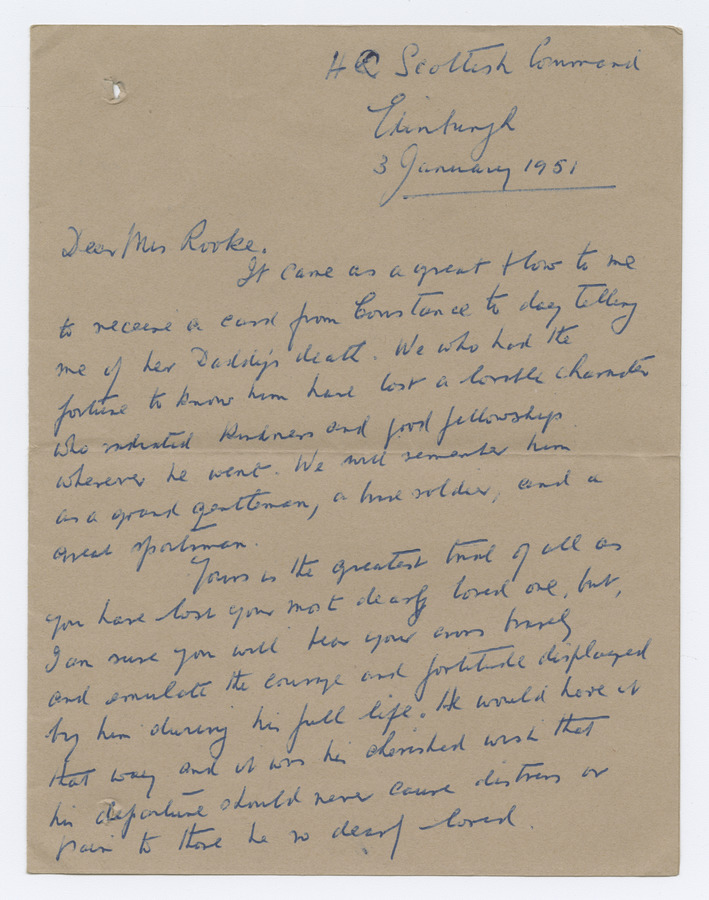 HQ Scottish Command
Edinburgh
3 January 1951
Dear Mrs Rooke.
It came as a great blow to me
to receive a card from Constance to day telling
me of her Daddy's death. We who had the
fortune to know him have lost a lovable character
who radiated kindness and good fellowship
wherever he went. We will remember him
as a grand gentleman, a true soldier, and a
great sportsman.
Yours is the greatest trial of all as
you have lost your most dearly loved one, but,
I am sure you will bear your cross bravely
and emulate the courage and fortitude displayed
by him during his full life. He would have it
that way and it was his cherished wish that
his departure should never cause distress or
pain to those he so dearly loved.